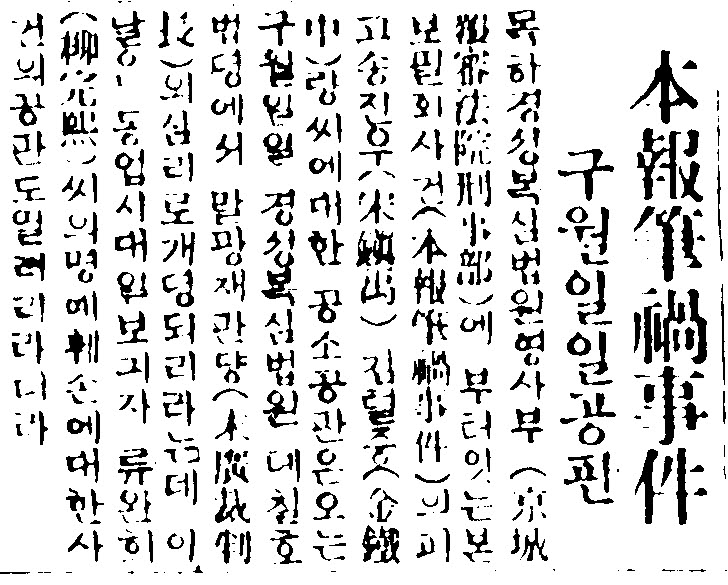 本報筆禍事件
구월일일공판
목하경성복심법원형사부 (京城
覆審法院刑事部)에 부터잇는본
보필화사건(本報筆禍事件)의피
고송진우(宋鎭禹) 김텰중(金鐵
中)량씨에대한 공소공판은오는
구월일일 경성복심법원 데칠호
법뎡에서 말광재판댱(末廣裁判
長)의심리로개뎡되리라는데 이
날은 동업시대일보긔자 류완희
(柳完熙)씨의명예훼손에대한사
건의공판도열려리라더라